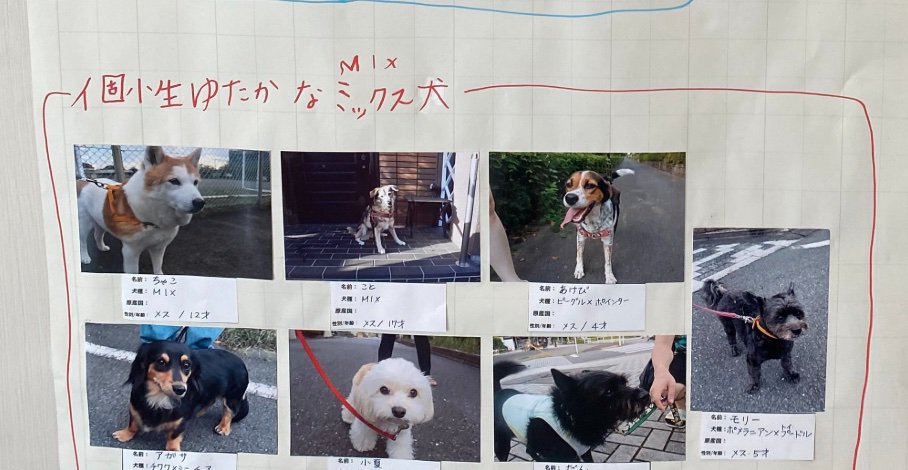 MIX
個性ゆたかなミックス犬
名前: ちゃこ
犬種: MIX
原産国:
性別/年齢: メス / 12才
名前: こと
犬種: MIX
原産国:
性別/年齢: メス / 17才
名前: あけび
犬種: ビーグル×ポインター
原産国:
性別/年齢: メス / 4才
名前: モリー
犬種: ポメラニアン×トイプードル
原産国:
性別/年齢: メス・5才
名前: アガサ
犬種:
名前: 小夏
名前: だん